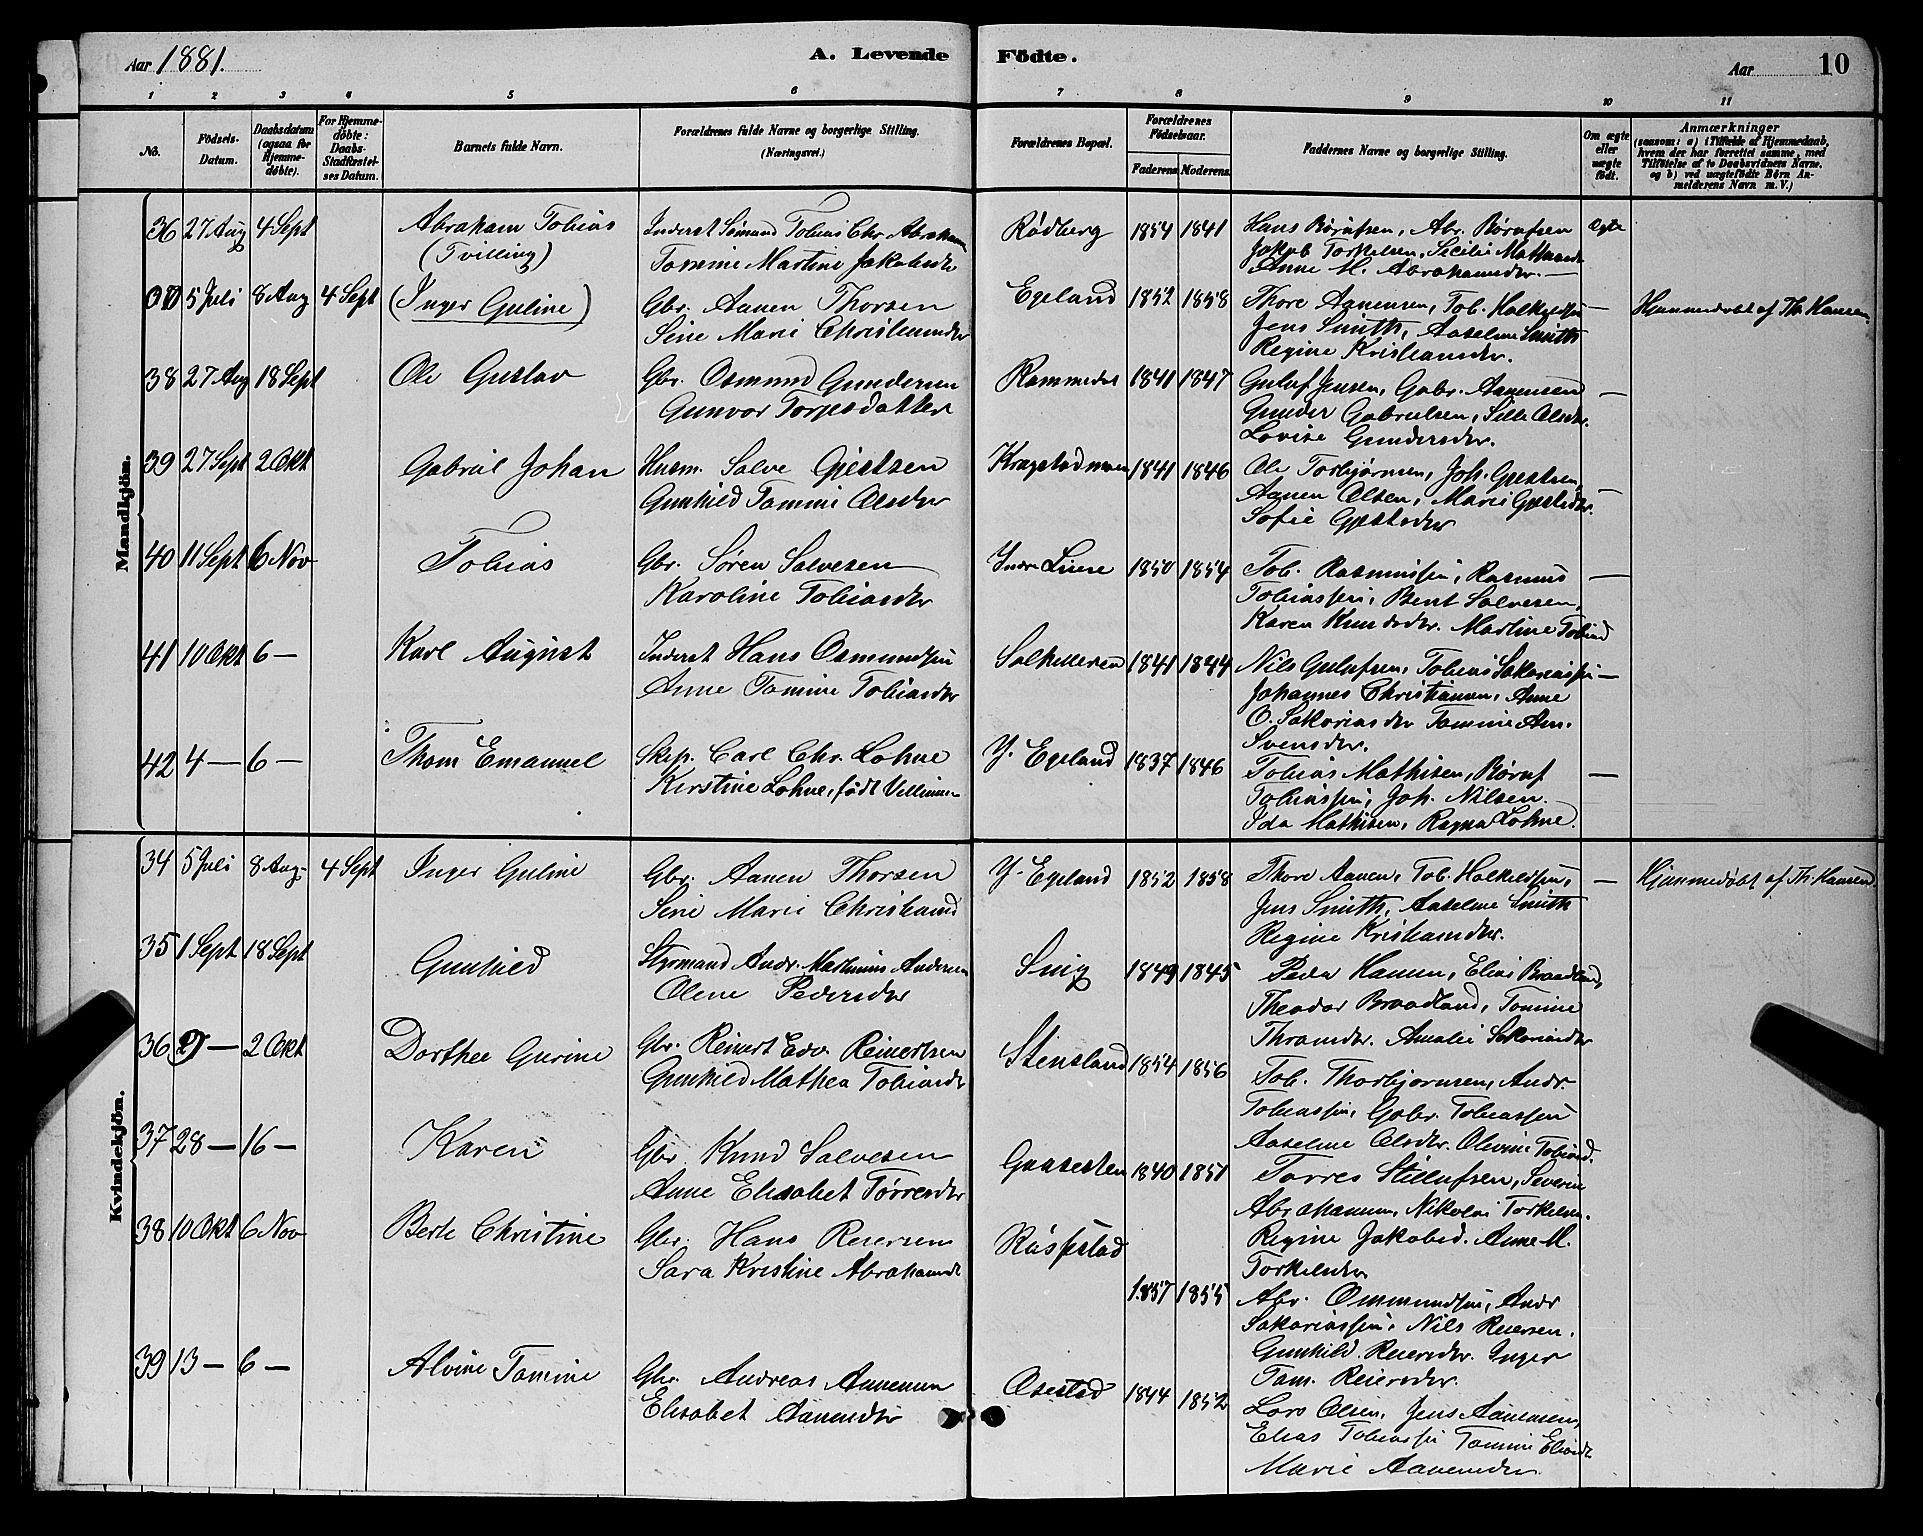 Aar 1881. A. Levende Födte. Aar 10
1 2 3 4 5 6 7 8 9 10 11
No. Födsels-Datum. Daabsdatum (ogsaa for Hjemme-döbte). For Hjemme-döbte: Daabs-Stadfæstel-ses Datum. Barnets fulde Navn. Forældrenes fulde Navne og borgerlige Stilling. (Næringsvei.) Forældrenes Bopæl. Forældrenes Födselsaar. Faderens Moderens Faddernes Navne og borgerlige Stilling. Om ægte eller uægte født. Anmærkninger (saasom: a) i Tilfælde af Hjemmedaab, hvem der har forrettet samme, med Tilföielse af to Daabsvidners Navne, og b) ved uægtefödte Börn An-melderens Navn m. V.)
Mandkjön.
36 27 Aug 4 Sept Abraham Tobias Inderst Sömand Tobias Chr. Abraham Rödberg 1854 1841 Hans Rörufsen, Abr. Rörufsen Ægte
(Tvilling) Tomine Martine Jakobsdr Jakob Torkelsen, Sicilie
Anne M. Abrahamsdr. —
37 5 Juli 8 Aug 4 Sept (Inger Guline) Gbr. Aanen Thorsen Egeland 1852 1858 Thore Aanensen, Tob. — Hjemmedöbt af Th. Hansen
Sine Marie Christiansdr Jens Smith, Aaseline Smith
Regine Kristiansdr.
38 27 Aug 18 Sept Ole Gustav Gbr. Osmund Gundersen 1841 1847 Guluf Jensen, Gabr. Aanensen —
Gunvor Torgesdatter Gunder Gabrielsen, Sille Olsdr.
Lovise Gundersdr.
39 27 Sept 2 Okt Gabriel Johan Husm. Salve Gjertsen Kragstadmoen 1841 1846 Ole Torbjørnsen, Joh. Gjertsen,
Gunhild Tomine Olsdr Aanen Olsen, Marie Gjertsdr. —
Sofie Gjertsdr
40 11 Sept 6 Nov Tobias Gbr. Søren Salvesen 1850 1854 Tob. Rasmussen, Rasmus —
Karoline Tobiasdr Tobiassen, Bent Salvesen,
Karen Knudsdr. Martine Tobiasd
41 10 Okt 6 — Karl August Inderst Hans Osmundsen 1841 1844 Nils Gulufsen, Tobias Sakariassen —
Anne Tomine Tobiasdr Johannes Christiansen, Anne
O. Sakariasdr Tomine Ann.
Svensdr.
42 4 — 6 — Thom Emanuel Skip. Carl Chr. Lohne Y. Egeland 1837 1846 Tobias Mathisen, Röruf —
Kirstine Lohne, født Tobiassen, Joh. Nilsen.
Ida Mathisen, Ragna Lohne.
Kvindekjön.
34 5 Juli 8 Aug. 4 Sept Inger Guline Gbr. Aanen Thorsen Y. Egeland 1852 1858 Thore Aanen, Tob. — Hjemmedöbt af Th. Hansen.
Sine Marie Christiansd Jens Smith, Aaseline Smith
Regine Kristiansdr.
35 1 Sept 18 Sept Gunhild Styrmand Andr. Martinius Andersen Snig 1849 1845 Peder Hansen, Elias Braadland,
Olene Pedersdr Theodor Braadland, Tomine
Amalie Sakariasdr
36 — 2 Okt Dorthee Gurine Gbr. Reinert Edv. Reinertsen Stensland 1854 1856 Tob. Thorbjørnsen, Andr.
Gunhild Mathea Tobiasdr Tobiassen, Gabr. Tobiassen
Aaseline Olsdr. Olivine Tobiasd.
37 28 — 16 — Karen Gbr Knud Salvesen Gaasesten 1840 1851 Torres Stillufsen, Severin
Anne Elisabet Tørresdr Abrahamsen, Nikolai Torkelsen.
Regine Jakobsd. Anne M.
Torkelsdr
38 10 Okt 6 Nov Berte Christine Gbr. Hans Reiersen 1857 1855 Abr. Ommundsen, Andr
Sara Kristine Abrahamsd Sakariassen, Nils Reiersen.
Gunhild Reiersdr. Inger
Tom. Reiersdr.
39 13 — 6 — Alvine Tomine Gbr. Andreas Aanensen Osestad 1844 1852 Lars Olsen, Jens Aanensen,
Elisabet Aanensdr Elias Tobiassen Tomine
Marie Aanensdr